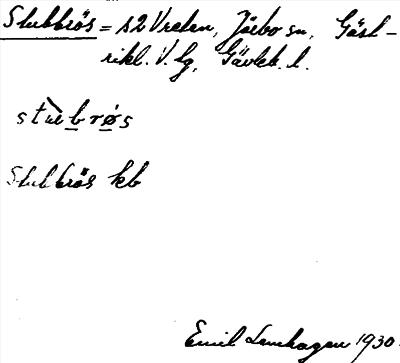 Stubbrös = s2 Vreten, Järbo sn, Gäst-
rikl. V. tg, Gävleb. l.
stùb rǿs
Stubbrös kb
Emil Lenhagen 1930